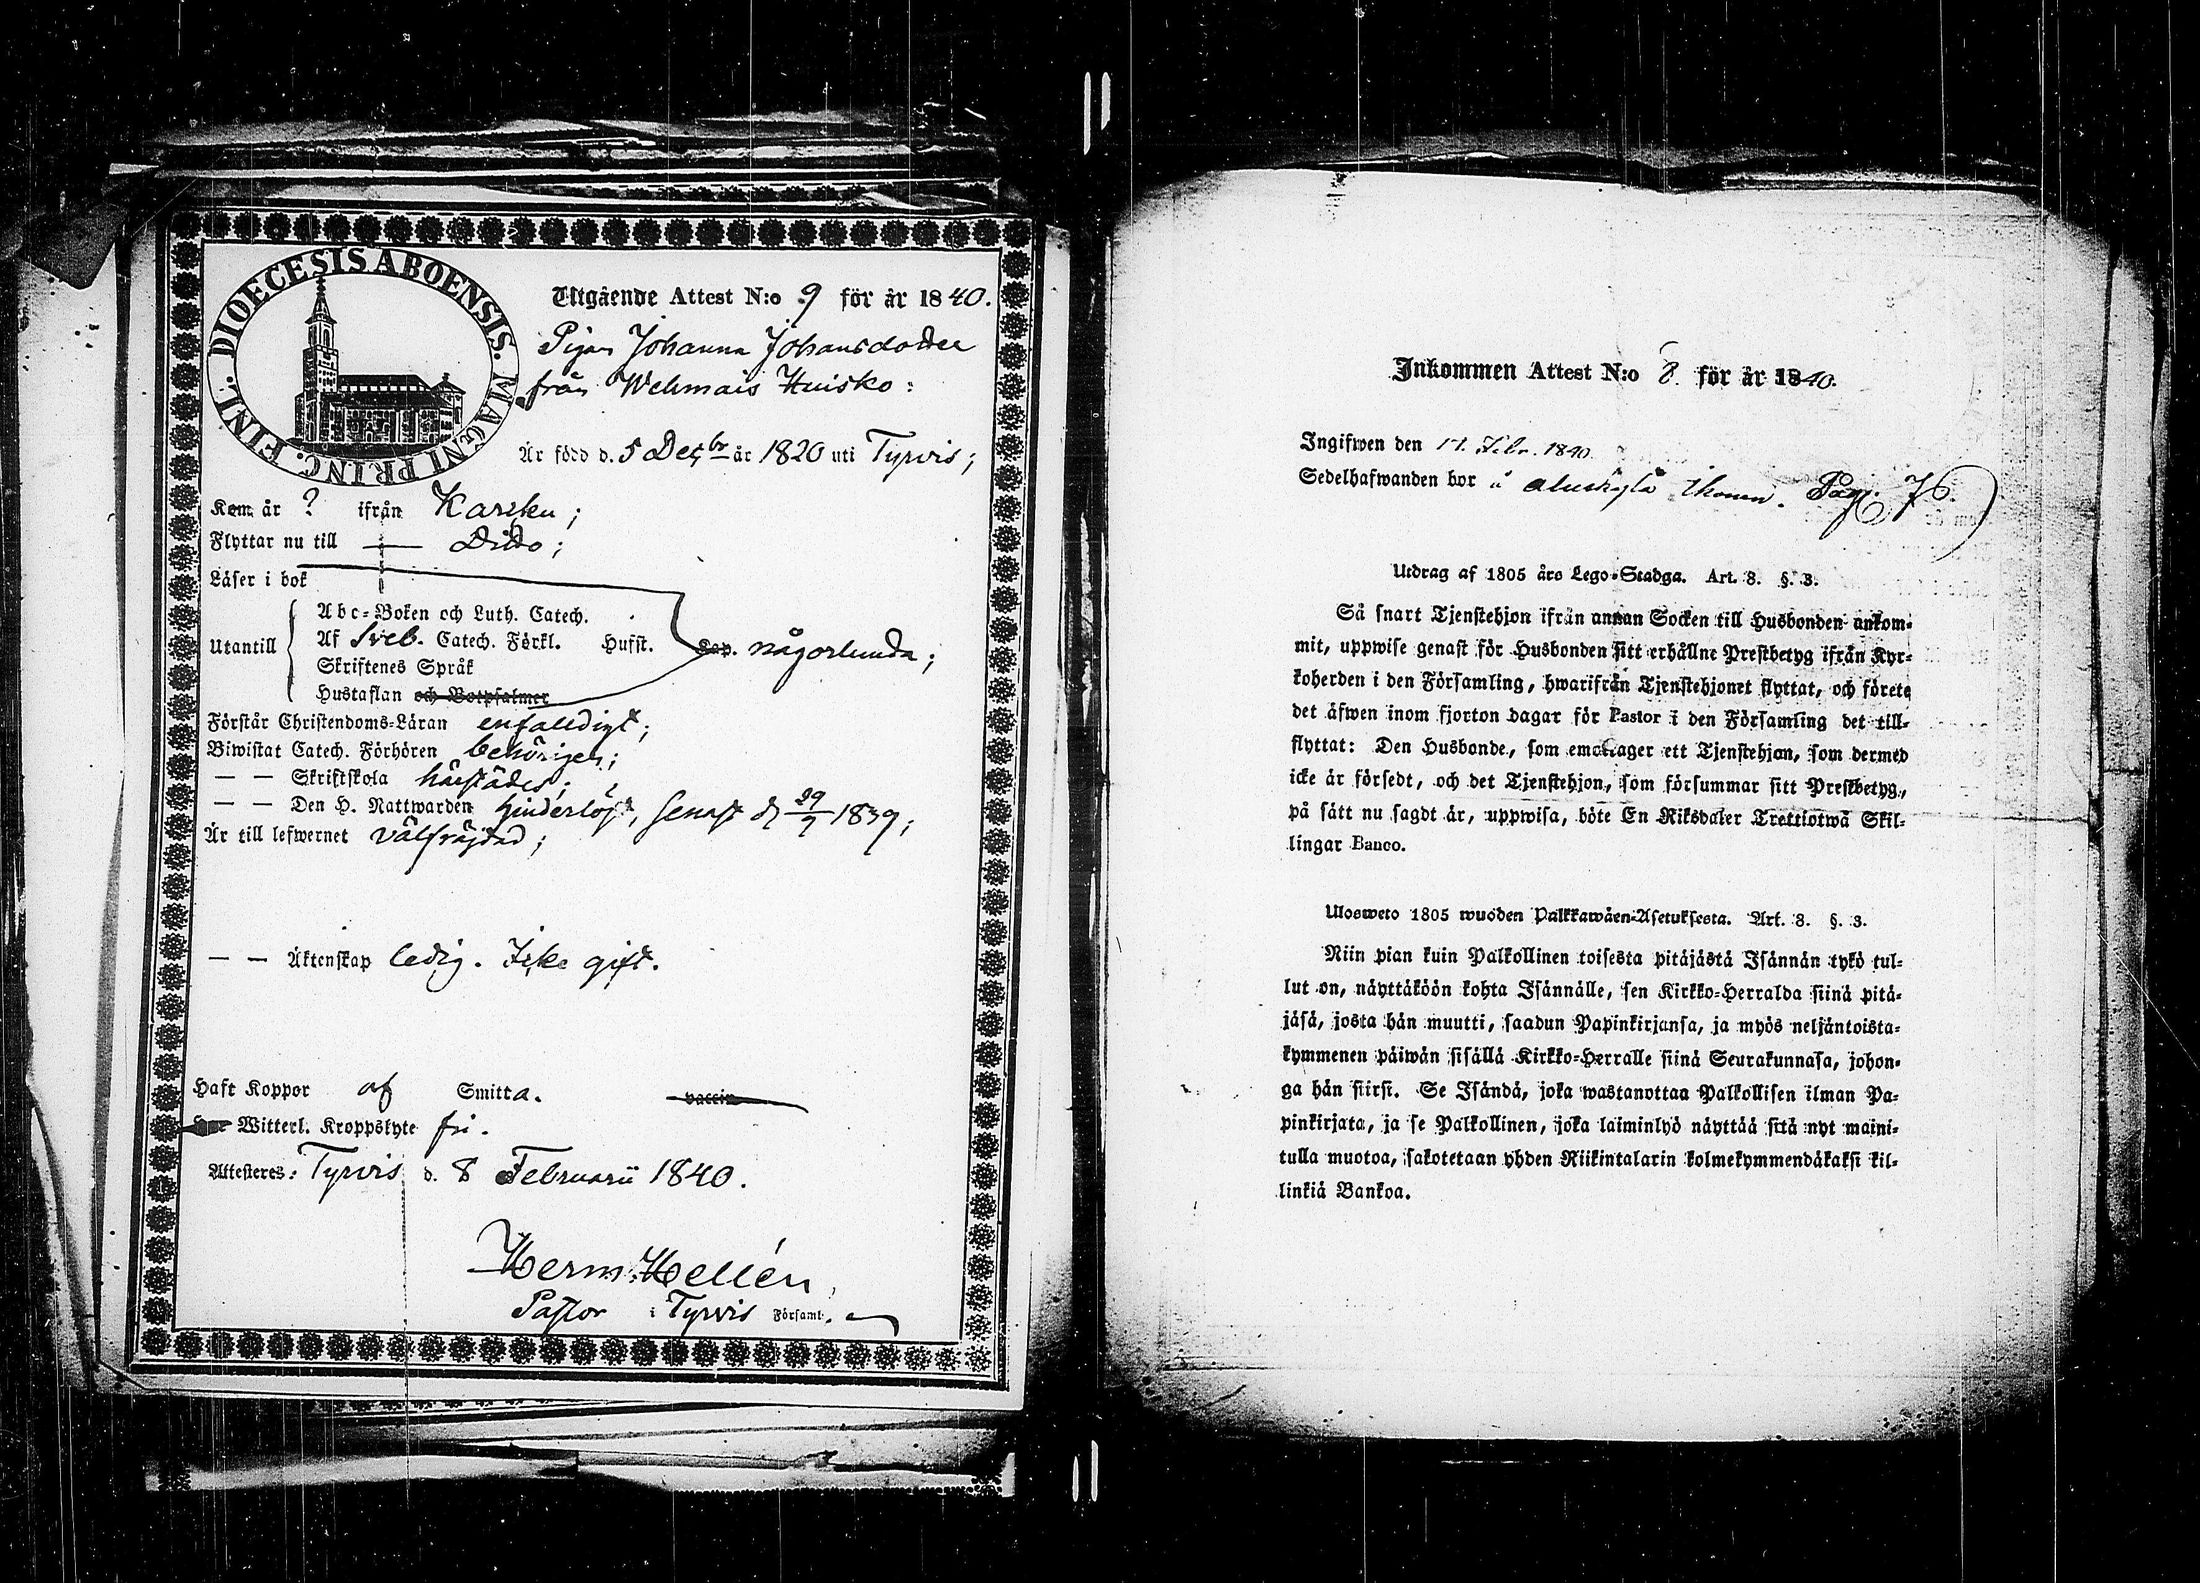 DIOECESIS ABOENSIS. MAGNI PRINC. FINL.
Utgående Attest N:o 9 för år 1840.
Pigan Johanna Johansdotter
från Wehmais Huisko:
Är född d. 5 Decbr år 1820 uti Tyrvis;
Kom år ? ifrån Karcku;
Flyttar nu till — Dito;
Läser i bok
Utantill
Abc-Boken och Luth. Catech.
Af Sveb. Catech. Förkl. Hufst. Cap. någorlunda;
Skriftenes Språk
Hustaflan och Botpsalmer
Förstår Christendoms-Läran enfaldigt;
Biwistat Catech. Förhören behörigen;
— — Skriftskola härstädes;
— — Den H. Nattwarden hinderlöst, senast d. 29/9 1839;
Är till lefwernet välfräjdad;
— — Äktenskap ledig. Icke gift.
Haft Koppor af Smitta. vaccin
Witterl. Kroppslyte fri.
Attesteras: Tyrvis d. 8 Februarii 1840.
Herm. Hellén,
Pastor i Tyrvis Församl.
Inkommen Attest N:o 8. för år 1840.
Ingifwen den 17. Febr. 1840
Sedelhafwanden bor å Pag. 76.
Utdrag af 1805 års Lego-Stadga. Art. 8. §. 3.
Så snart Tjenstehjon ifrån annan Socken till Husbonden ankom-
mit, uppwise genast för Husbonden sitt erhållne Prestbetyg ifrån Kyr-
koherden i den Församling, hwarifrån Tjenstehjonet flyttat, och förete
det äfwen inom fjorton dagar för Pastor i den Församling det till-
flyttat: Den Husbonde, som emottager ett Tjenstehjon, som dermed
icke är försedt, och det Tjenstehjon, som försummar sitt Prestbetyg,
på sätt nu sagdt är, uppwisa, böte En Riksdaler Trettiotwå Skil-
lingar Banco.
Ulosweto 1805 wuoden Palkkawäen-Asetuksesta. Art. 8. §. 3.
Niin pian kuin Palkollinen toisesta pitäjästä Isännän tykö tul-
lut on, näyttäköön kohta Isännälle, sen Kirkko-Herralda siinä pitä-
jäsä, josta hän muutti, saadun Papinkirjansa, ja myös neljäntoista-
kymmenen päiwän sisällä Kirkko-Herralle siinä Seurakunnasa, johon-
ga hän siirsi. Se Isändä, joka wastanottaa Palkollisen ilman Pa-
pinkirjata, ja se Palkollinen, joka laiminlyö näyttää sitä nyt maini-
tulla muotoa, sakotetaan yhden Riikintalarin kolmekymmendäkaksi kil-
linkiä Bankoa.